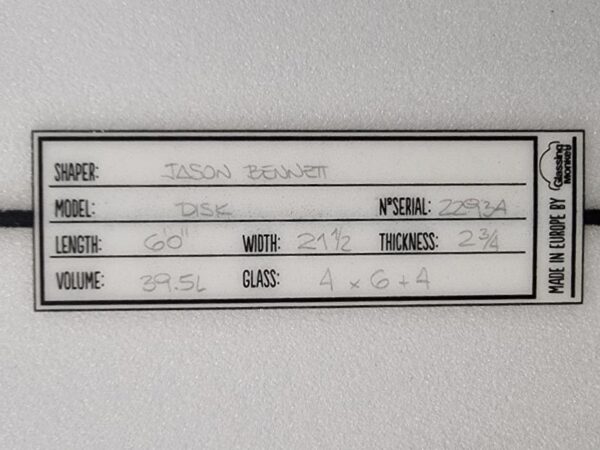 SHAPER: JASON BENNETT
MODEL: DISK N°SERIAL: 2293A
LENGTH: 6'0" WIDTH: 21 1/2 THICKNESS: 2 3/4
VOLUME: 39.5L GLASS: 4 x 6 + 4
MADE IN EUROPE BY Glassing Monkey